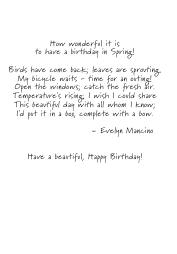 How wonderful it is
to have a birthday in Spring!
Birds have come back; leaves are sprouting.
My bicycle waits - time for an outing!
Open the windows; catch the fresh air.
Temperature's rising; I wish I could share
This beautiful day with all whom I know;
I'd put it in a box, complete with a bow.
- Evelyn Mancino
Have a beautiful, Happy Birthday!